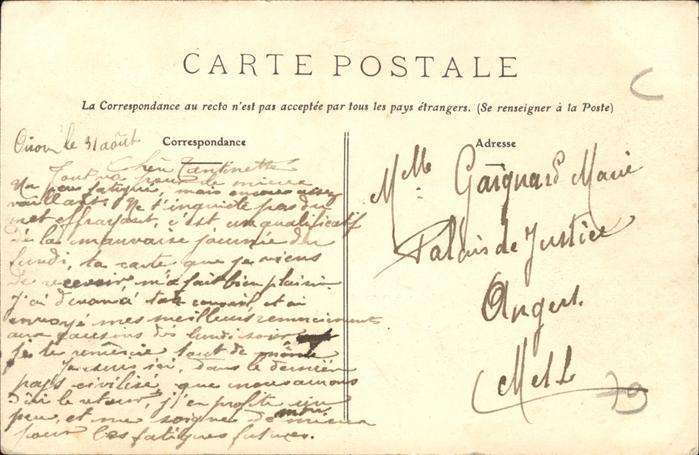 CARTE POSTALE
La Correspondance au recto n'est pas acceptée par tous les pays étrangers. (Se renseigner à la Poste)
Correspondance
le 31 août
Chère Tantinette
Tout va pour le mieux
Un peu fatigués, mais encore assez
vaillants. Ne t'inquiète pas du
mot effrayant, c'est un qualificatif
de la mauvaise journée du
lundi, ta carte que je viens
de recevoir, m'a fait bien plaisir
J'ai deviné ton et ai
envoyé mes meilleurs remerciements
aux cousins dès lundi soir
je te remercie tout de même
Je suis ici, dans le dernier
pays civilisé, que nous aurons
d'ici le retour, j'en profite un
peu, et me soigne de mieux
pour les fatigues futures.
Adresse
Melle Gaignard Marie
Palais de Justice
Angers
M et L
79